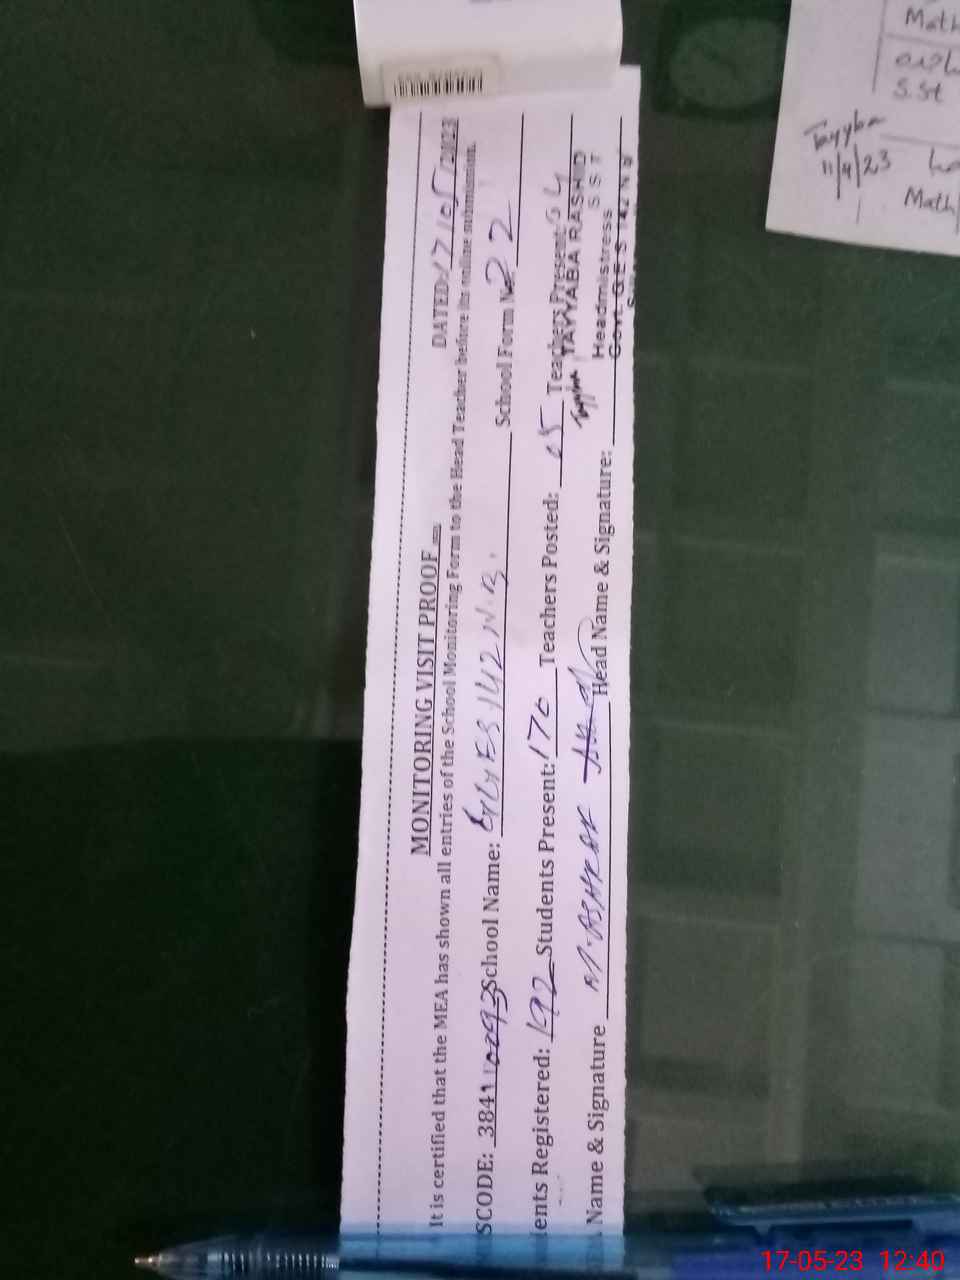 MONITORING VISIT PROOF
DATED: 17/05/2023
It is certified that the MEA has shown all entries of the School Monitoring Form to the Head Teacher before its online submission.
SCODE: 38411 School Name: 142 N.B. School Form No 22
ents Registered: 192 Students Present: 170 Teachers Posted: 05 Teachers Present: 04
Name & Signature M. ASHRAF Head Name & Signature:
Tayyba TAYYABA RASHID
S S T
Headmistress
Govt. G.E.S 142 N B
Math
S.St
Tayyba
11/4/23
Math
17-05-23 12:40